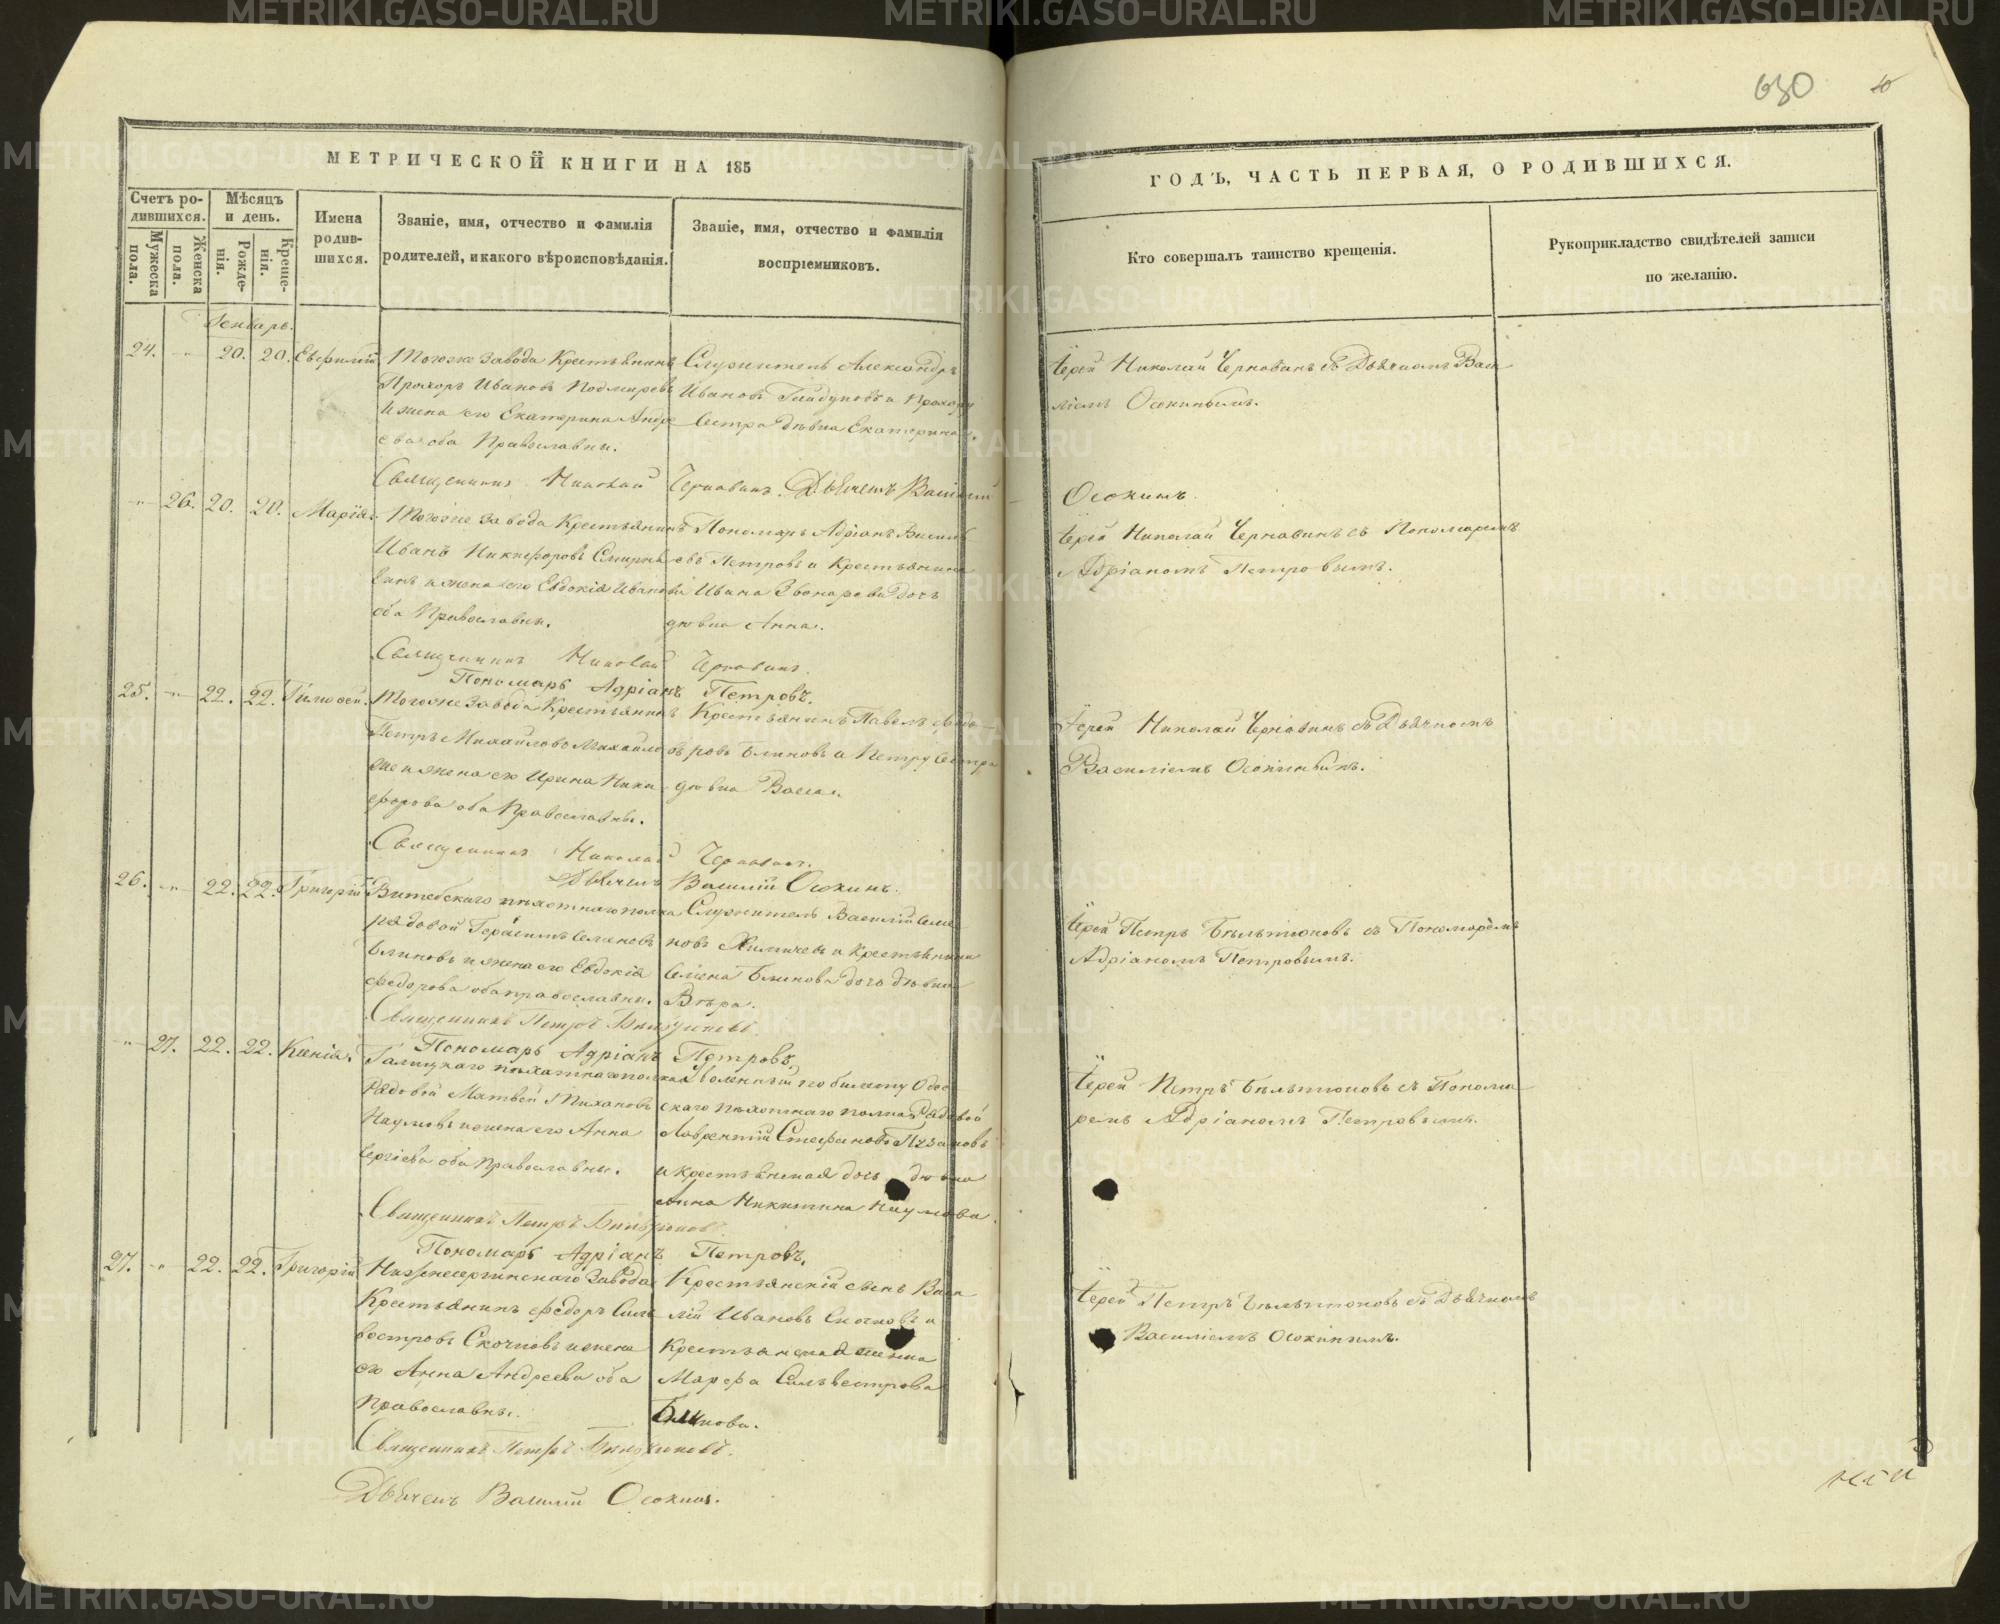 630
МЕТРИЧЕСКОЙ КНИГИ НА 185
ГОДЪ, ЧАСТЬ ПЕРВАЯ, О РОДИВШИХСЯ.
Счетъ ро-
дившихся.
Мужеска пола.
Женска пола.
Мѣсяцъ
и день.
Рожде-
нія.
Креще-
нія.
Имена
родив-
шихся.
Званіе, имя, отчество и фамилія
родителей, и какого вѣроисповѣданія.
Званіе, имя, отчество и фамилія
воспріемниковъ.
Кто совершалъ таинство крещенія.
Рукоприкладство свидѣтелей записи
по желанію.
Генварь.
24. -"- 20. 20. Евфимій
Тогоже завода Крестьянинъ
Прохоръ Ивановъ
и жена его Екатерина Андре
ева оба Православны.
Служитель Александръ
Ивановъ а Прохору
Сестра дѣвка Екатерина.
Іерей Николай Чернавинъ съ Дьячкомъ Васи
ліемъ Осокинымъ.
Священникъ Николай Чернавинъ. Дьячекъ Василій Осокинъ.
-"- 26. 20. 20. Марія.
Тогоже завода Крестьянинъ
Иванъ Никифоровъ Смирня
гинъ и жена его Евдокія Иванова
оба Православны.
Пономарь Адріанъ Василь
евъ Петровъ и Крестьянина
Ивана Звонарева дочь
дѣвка Анна.
Іерей Николай Чернавинъ съ Пономаремъ
Адріаномъ Петровымъ.
Священникъ Николай Чернавинъ.
Пономарь Адріанъ Петровъ.
25. -"- 22. 22. Тимофей.
Тогоже завода Крестьянинъ
Петръ Михайловъ
и жена его Ирина Ники
форова оба Православны.
Крестьянинъ Павелъ Федо
ровъ Блиновъ а Петру Сестра
дѣвка Васса.
Іерей Николай Чернавинъ съ Дьячкомъ
Василіемъ Осокинымъ.
Священникъ Николай Чернавинъ.
Дьячекъ Василій Осокинъ.
26. -"- 22. 22. Григорій
Витебскаго пѣхотнаго полка
рядовой Герасимъ Семеновъ
Блиновъ и жена его Евдокія
Федорова оба православны.
Служитель Василій Семе
новъ и Крестьянина
Семена Блинова дочь дѣвка
Вѣра.
Іерей Петръ съ Пономаремъ
Адріаномъ Петровымъ.
Священникъ Петръ
Пономарь Адріанъ Петровъ.
-"- 27. 22. 22. Ксенія.
Галицкаго пѣхотнаго полка
Рядовой Матвей
Наумовъ и жена его Анна
Сергіева оба Православны.
Уволенный по билету Одес
скаго пѣхотнаго полка Рядовой
Лаврентій Стефановъ
и крестьянская дочь дѣвка
Анна Никитина Наумова.
Іерей Петръ съ Понома
ремъ Адріаномъ Петровымъ.
Священникъ Петръ
Пономарь Адріанъ Петровъ.
27. -"- 22. 22. Григорій
Нижнесергинскаго Завода
Крестьянинъ Федоръ Силь
вестровъ Скочковъ и жена
его Анна Андреева оба
Православны.
Крестьянскій сынъ Васи
лій Ивановъ и
Крестьянская жена
Марфа Сильвестрова
Блинова.
Іерей Петръ съ Дьячкомъ
Василіемъ Осокинымъ.
Священникъ Петръ
Дьячекъ Василій Осокинъ.
METRIKI.GASO-URAL.RU